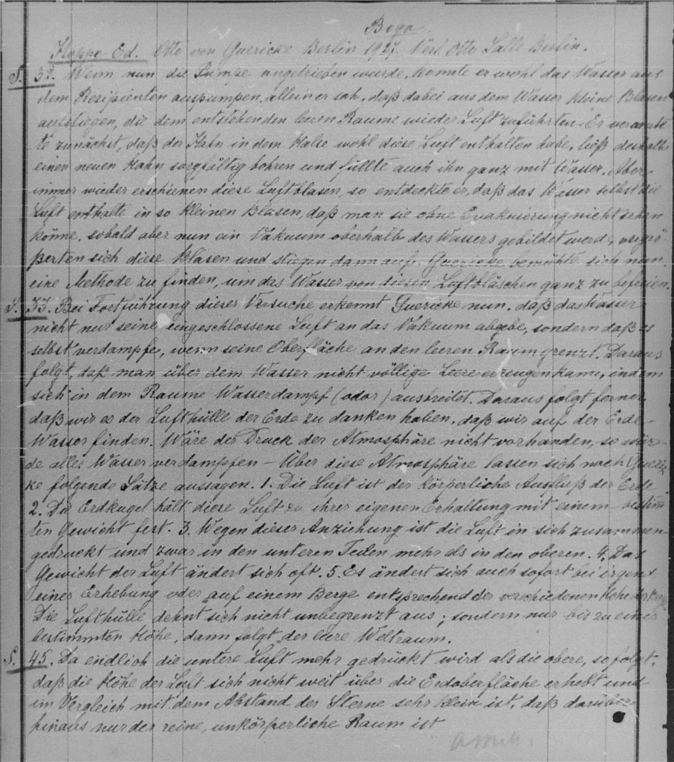 Boga
Hoppe Ed. Otto von Guericke Berlin 1927. Verl. Otto Salle Berlin.
S. 32. Wenn nun die Pumpe angetrieben wurde, konnte er wohl das Wasser aus
dem Rezipienten auspumpen, allein er sah, daß dabei aus dem Wasser kleine Blasen
aufstiegen, die dem entstehenden leeren Raume wieder Luft zuführten. Er vermute
te zunächst, daß der Hahn in dem Halse wohl diese Luft enthalten habe, ließ deshalb
einen neuen Hahn sorgfältig bohren und füllte auch ihn ganz mit Wasser. Aber
immer wieder erschienen diese Luftblasen, so entdeckte er, daß das Wasser selbst die
Luft enthalte in so kleinen Blasen, daß man sie ohne Evakuierung nicht sehen
könne, sobald aber nun ein Vakuum oberhalb des Wassers gebildet werd, vergrö
ßerten sich diese Blasen und stiegen dann auf. Guericke bemühte sich nun
eine Methode zu finden, um das Wasser von diesen Luftbläschen ganz zu befreien.
S. 33. Bei Fortführung dieser Versuche erkennt Guericke nun, daß das Wasser
nicht nur seine eingeschlossene Luft an das Vakuum abgebe, sondern daß es
selbst verdampfe, wenn seine Oberfläche an den leeren Raum grenzt. Daraus
folgt, daß man über dem Wasser nicht völlige Leere erzeugen kann, indem
sich in dem Raume Wasserdampf (odor) ausbreitet. Daraus folgt ferner
daß wir es der Lufthülle der Erde zu danken haben, daß wir auf der Erde
Wasser finden. Wäre der Druck der Atmosphäre nicht vorhanden, so wür
de alles Wasser verdampfen – Über diese Atmosphäre lassen sich nach Gueric
ke folgende Sätze aussagen. 1. Die Luft ist der körperliche Ausfluß der Erde
2. Die Erdkugel hält diese Luft zu ihrer eigenen Erhaltung mit einem bestimm
ten Gewicht fest. 3. Wegen dieser Anziehung ist die Luft in sich zusammen
gedrückt und zwar in den unteren Teilen mehr als in den oberen. 4. Das
Gewicht der Luft ändert sich oft. 5. Es ändert sich auch sofort bei irgend
einer Erhebung oder auf einem Berge entsprechend der verschiedenen Höhe
Die Lufthülle dehnt sich nicht unbegrenzt aus; sondern nur bis zu einer
bestimmten Höhe, dann folgt der leere Weltraum.
S. 45. Da endlich die untere Luft mehr gedrückt wird als die obere, so folgt,
daß die Höhe der Luft sich nicht weit über die Erdoberfläche erhebt und
im Vergleich mit dem Abstand der Sterne sehr klein ist, daß darüber
hinaus nur der reine, unkörperliche Raum ist